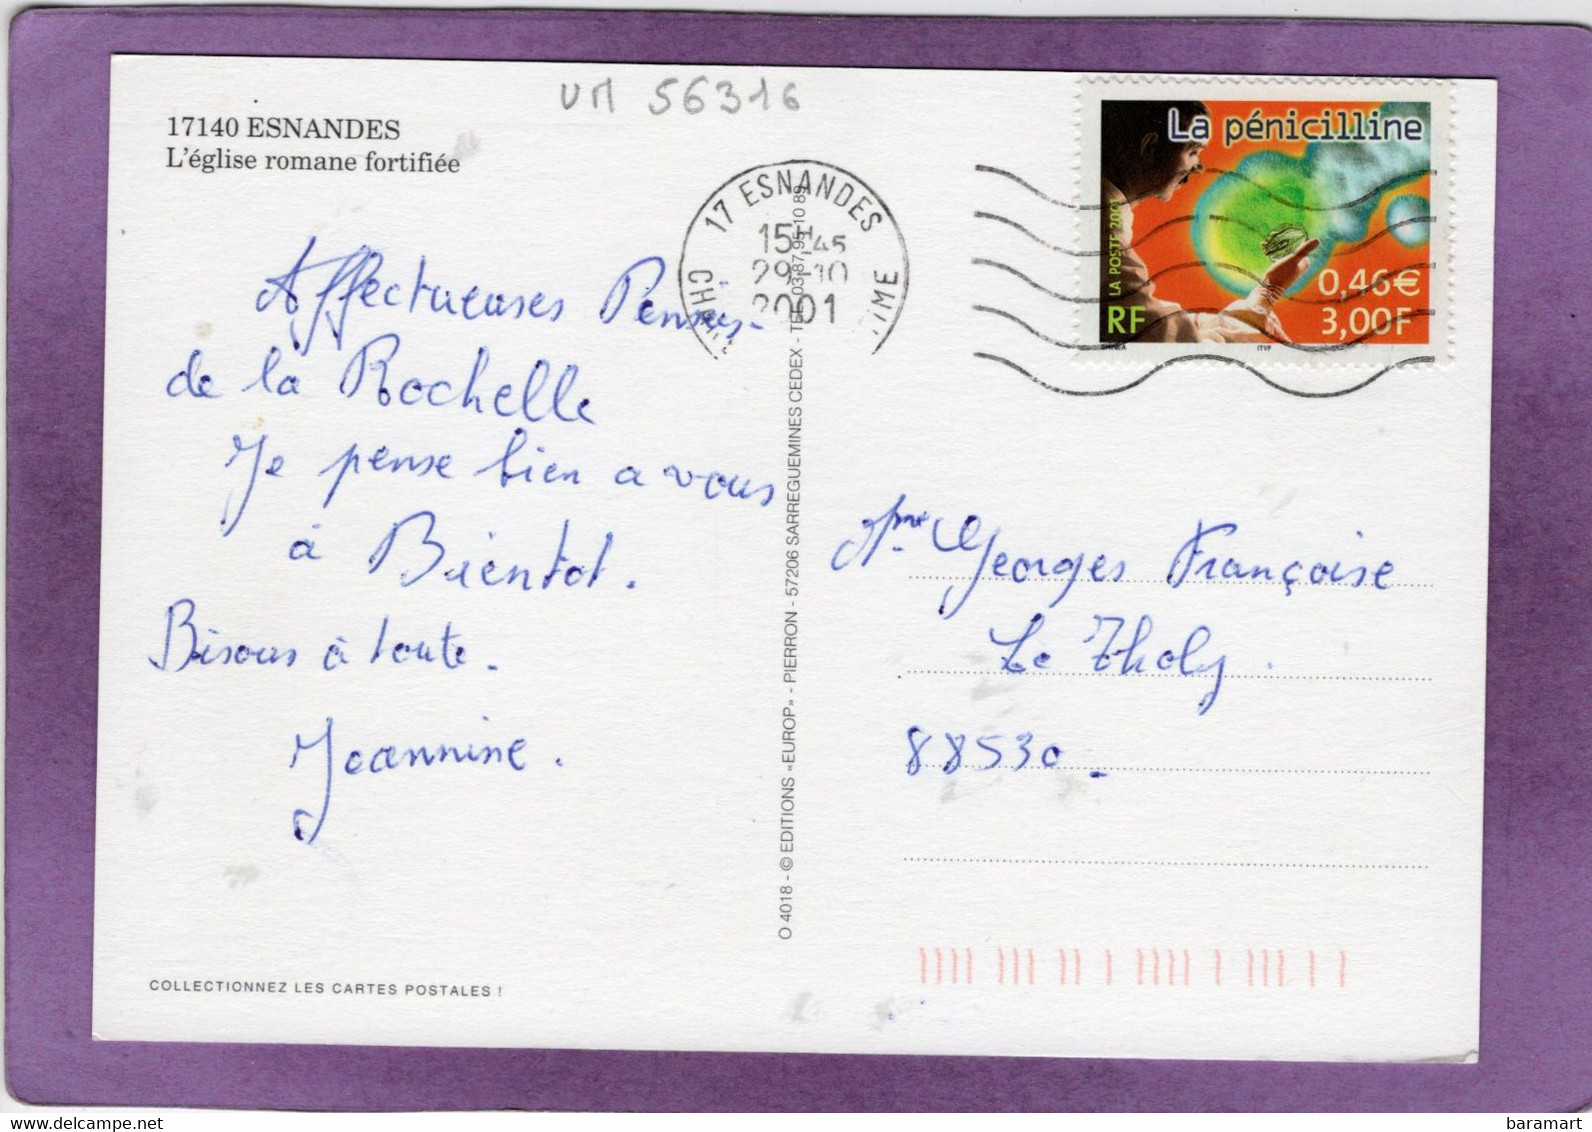 UM 56316
17140 ESNANDES
L'église romane fortifiée
17 ESNANDES
15H45
29-10
2001
La pénicilline
LA POSTE 2001
0,46€
3,00F
RF
ITVF
Affectueuses Pensées
de la Rochelle
Je pense bien a vous
à Bientot.
Bisous à toute.
Jeannine.
O 4018 - © EDITIONS «EUROP» - PIERRON - 57206 SARREGUEMINES CEDEX - TEL 03 87 95 10 89
Mme Georges Françoise
Le Tholy.
88530.
COLLECTIONNEZ LES CARTES POSTALES !
www.delcampe.net
baramart